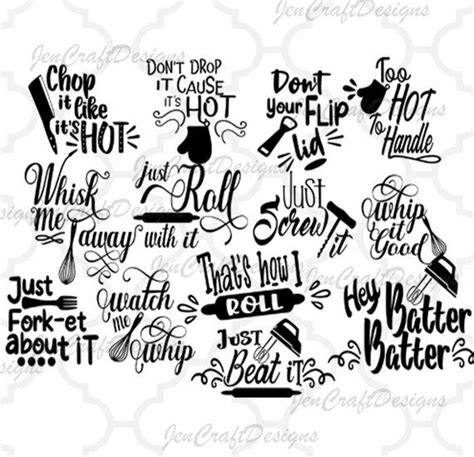 JenCraftDesigns
Chop
it like
it's HOT
DON'T DROP
IT CAUSE
it's HOT
Don't
your FLIP
lid
Too
HOT
To
Handle
Whisk
Me
away
just
Roll
with it
JUST
Screw
it
whip
it
Good
Just
FORK-et
about iT
watch
me
whip
That's how I
ROLL
JUST
Beat iT
Hey
Batter
Batter
JenCraftDesigns
JenCraftDesigns